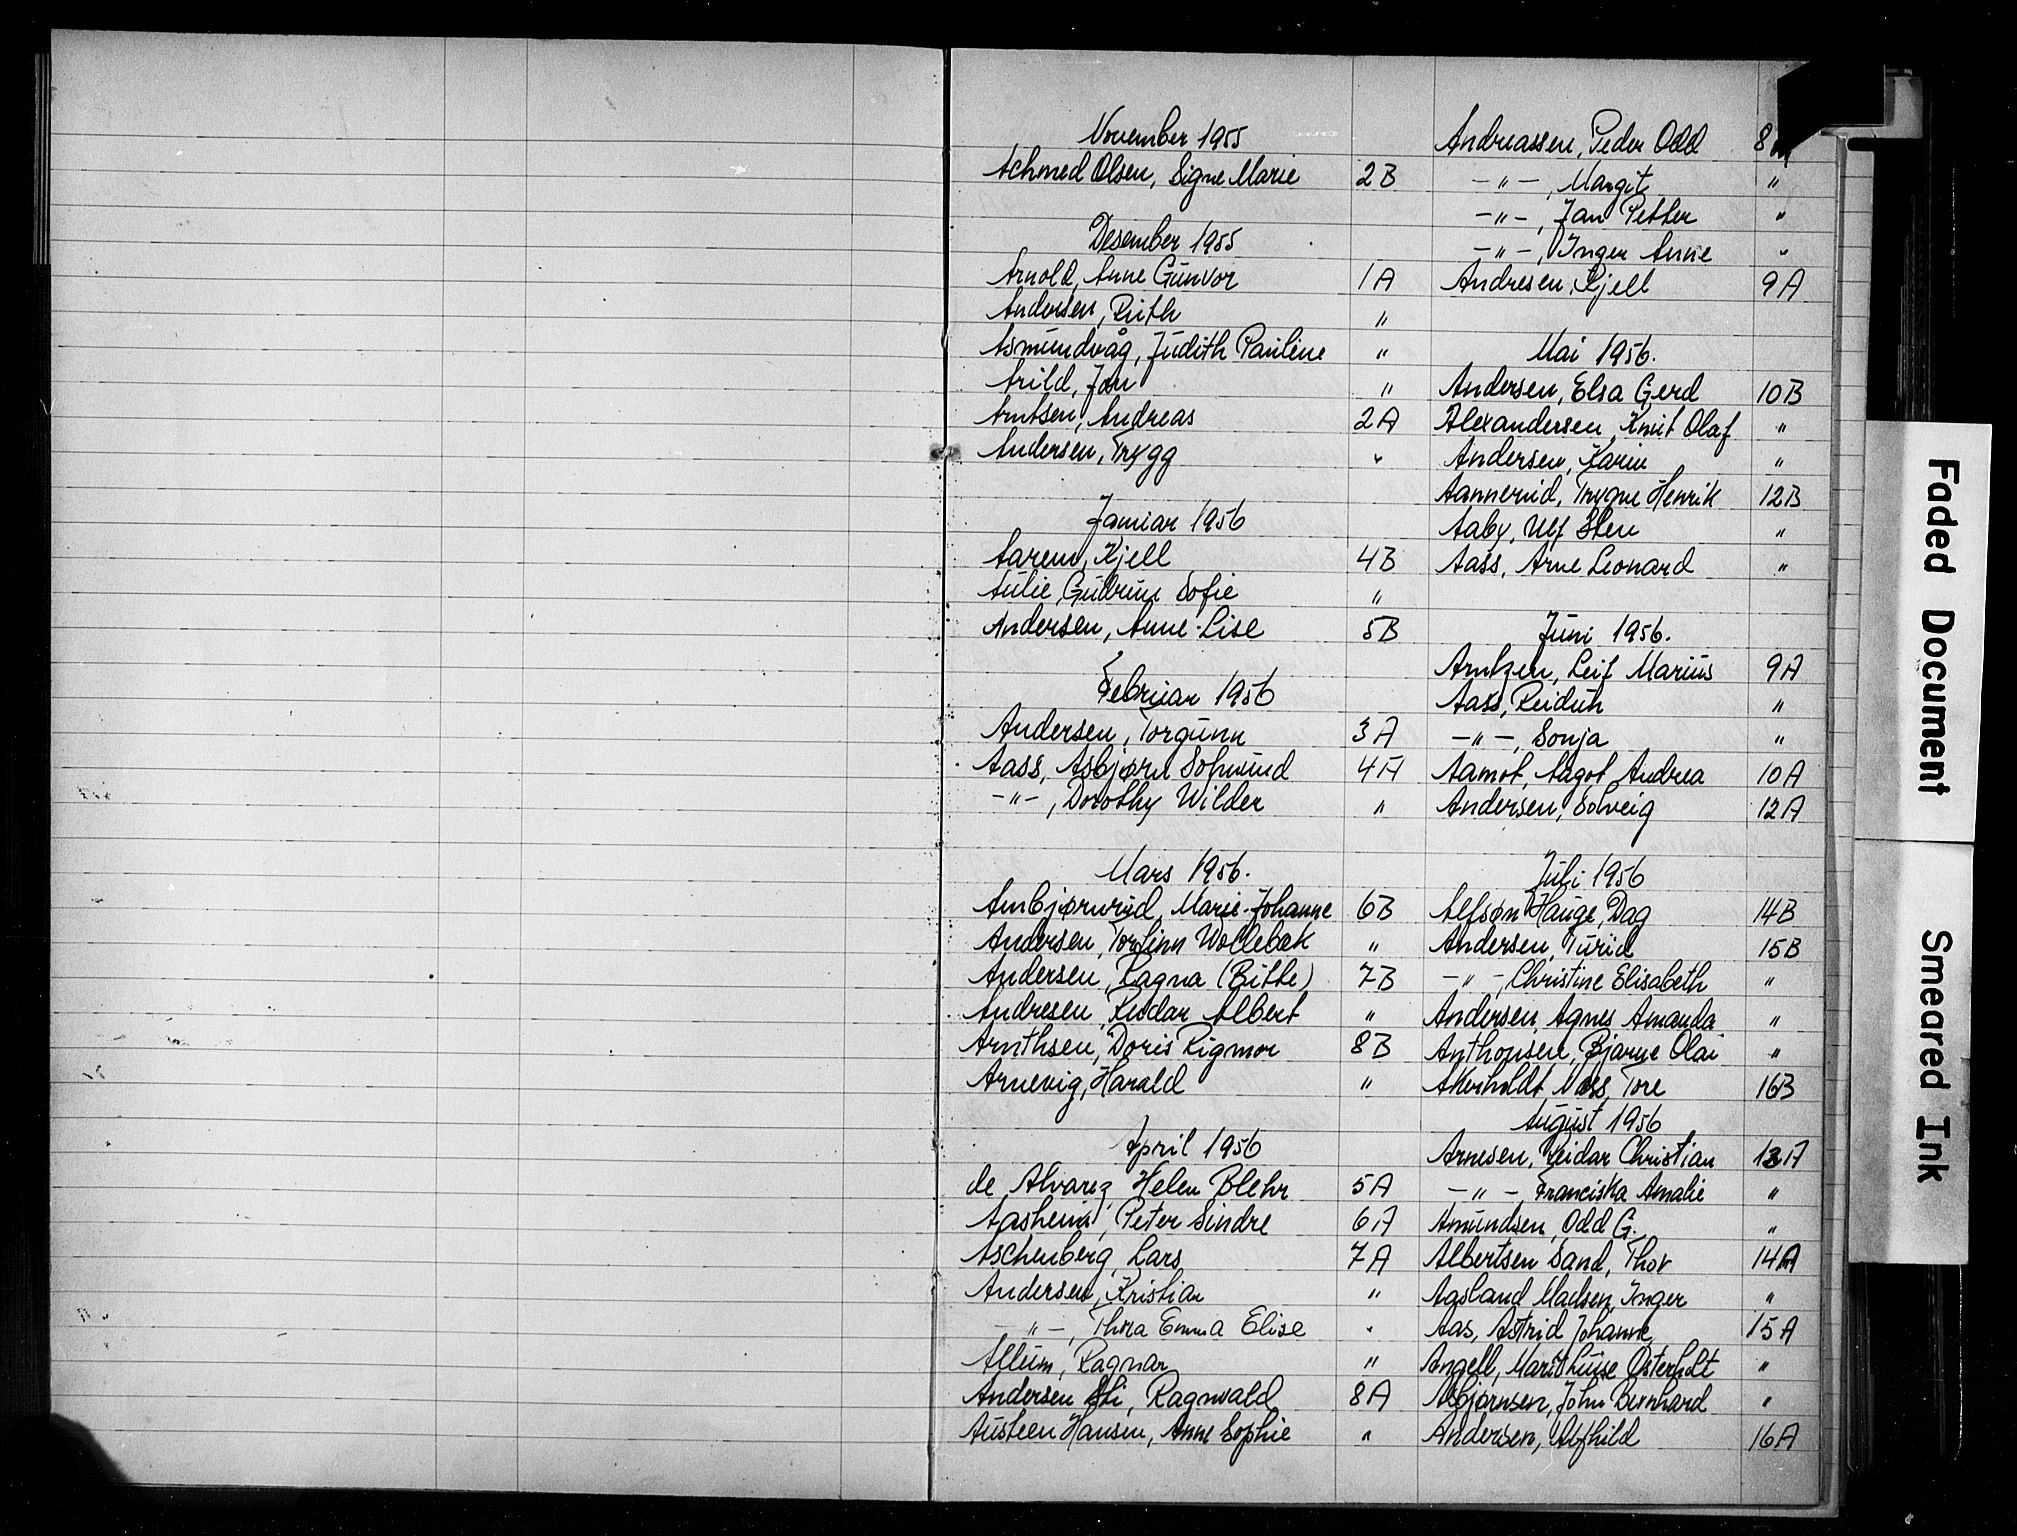 November 1955
Achmed Olsen, Signe Marie 2B
Desember 1955
Arnold, Anne Gunvor 1A
Andersen, Ruth "
Asmundvåg, Judith Pauline "
Arild, Jan "
Arntsen, Andreas 2A
Andersen, Trygg "
Januar 1956
Aarem, Kjell 4B
Aulie, Gudrun Sofie "
Andersen, Anne-Lise 5B
Februar 1956
Andersen, Torgunn 3A
Aass, Asbjørn 4A
-"-, Dorothy Wilder "
Mars 1956.
Arnbjørnrud, Marie-Johanne 6B
Andersen, Torfinn Wollebæk "
Andersen, Ragna (Bitte) 7B
Andresen, Reidar Albert "
Arnthsen, Doris Rigmor 8B
Arnevig, Harald "
April 1956
de Alvarez, Helen Blehr 5A
Aasheim, Peter Sindre 6A
Aschenberg, Lars 7A
Andersen, Kristian "
-"-, Thora Emma Elise "
Allum, Ragnar "
Andersen Sti, Ragnvald 8A
Austeen Hansen, Anne Sophie "
Andreassen, Peder Odd 8A
-"-, Margit "
-"-, Jan Petter "
-"-, Inger Anne "
Andresen, Kjell 9A
Mai 1956.
Andersen, Elsa Gerd 10B
Alexandersen, Knut Olaf "
Andersen, Karin "
Aannerud, Trygve Henrik 12B
Aaby, Ulf Sten "
Aass, Arne Leonard "
Juni 1956.
Arntzen, Leif Marius 9A
Aass, Reidun "
-"-, Sonja "
Aamot, Aagot Andrea 10A
Andersen, Solveig 12A
Juli 1956
Alfsøn Hauge, Dag 14B
Andersen, Turid 15B
-"-, Christine Elisabeth "
Andersen, Agnes Amanda "
Anthonsen, Bjarne Olai "
Akerholdt Moss, Tore 16B
August 1956
Arnesen, Reidar Christian 13A
-"-, Franciska Amalie "
Amundsen, Odd G. "
Albertsen Sand, Thor 14A
Aasland Madsen, Inger "
Aas, Astrid Johanne 15A
Angell, Marit Osterholt "
Asbjørnsen, John Bernhard "
Andersen, Alfhild 16A
Faded Document
Smeared Ink